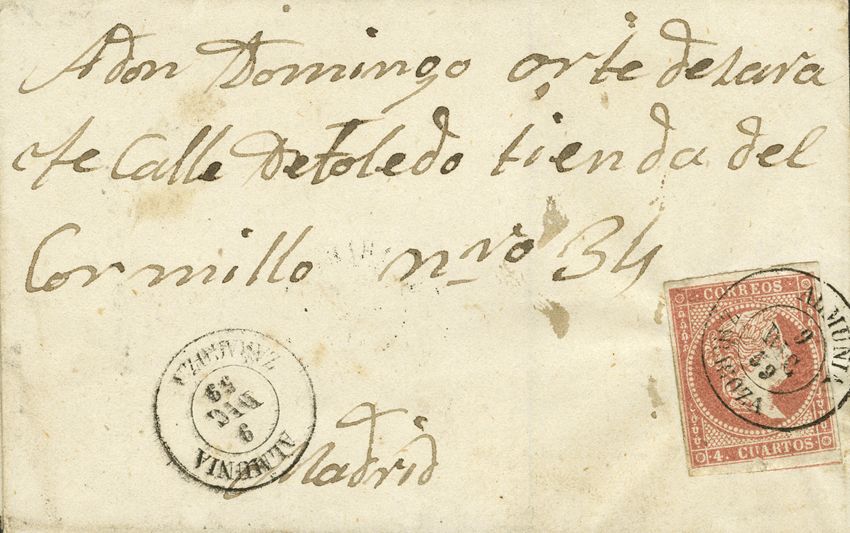 Adon Domingo orte de lara
cfe Calle De toledo tienda del
Cormillo nro 34
Madrid
ZARAGOZA
9
DIC
59
ALMUNIA
CORREOS
4. CUARTOS
ALMUNIA
9
DIC
59